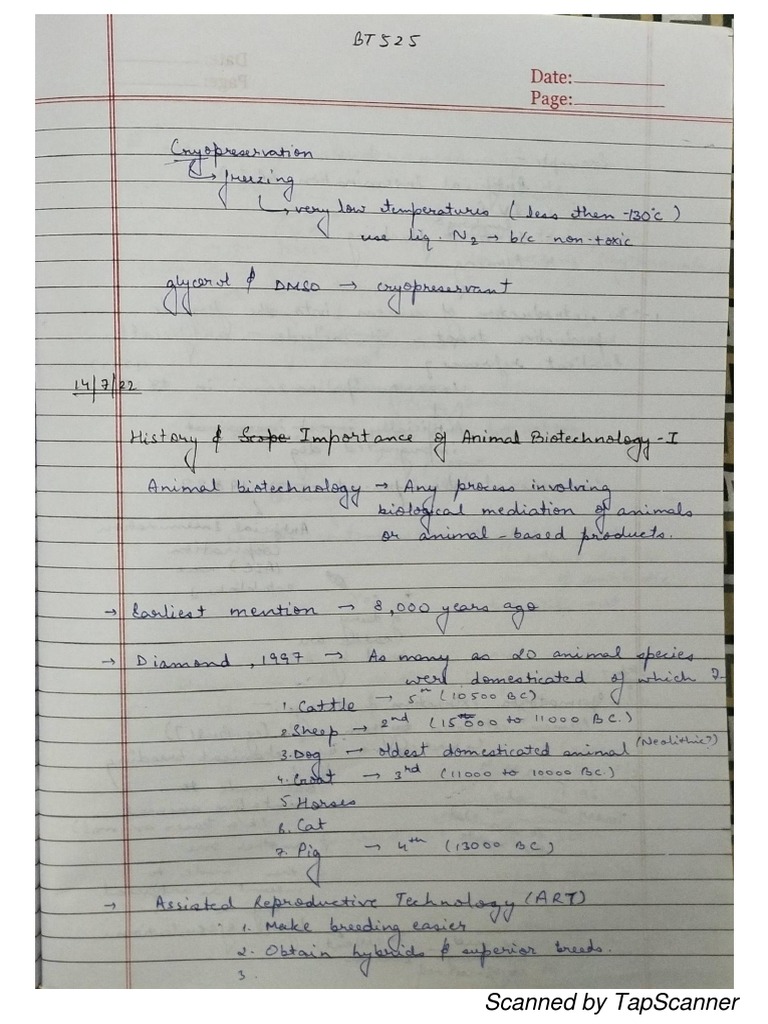 BT525
Date:
Page:
Cryopreservation
↳ freezing
↳ very low temperatures ( less then -130°c )
use liq. N2 → b/c non-toxic
glycerol & DMSO → cryopreservant
14/7/22
History & Scope Importance of Animal Biotechnology - I
Animal biotechnology → Any process involving
biological mediation of animals
or animal-based products.
→ Earliest mention → 8,000 years ago
→ Diamond, 1997 → As many as 20 animal species
were domesticated of which 7-
1. Cattle → 5th (10500 BC)
2. Sheep → 2nd (15000 to 11000 BC.)
3. Dog → oldest domesticated animal (Neolithic?)
4. Goat → 3rd (11000 to 10000 BC.)
5. Horses
6. Cat
7. Pig → 4th (13000 BC)
→ Assisted Reproductive Technology (ART)
1. Make breeding easier
2. Obtain hybrids & superior breeds.
3.
Scanned by TapScanner